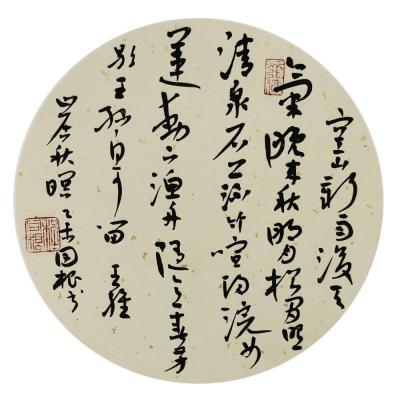 空山新雨後天
氣晚来秋明月松間照
清泉石上流竹喧归浣女
蓮動下漁舟随意春芳
歇王孫自可留 王維
山居秋暝 国根书